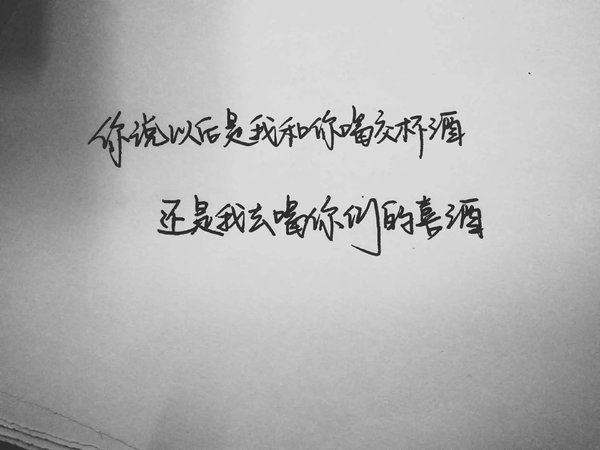 你说以后是我和你喝交杯酒
还是我去喝你们的喜酒